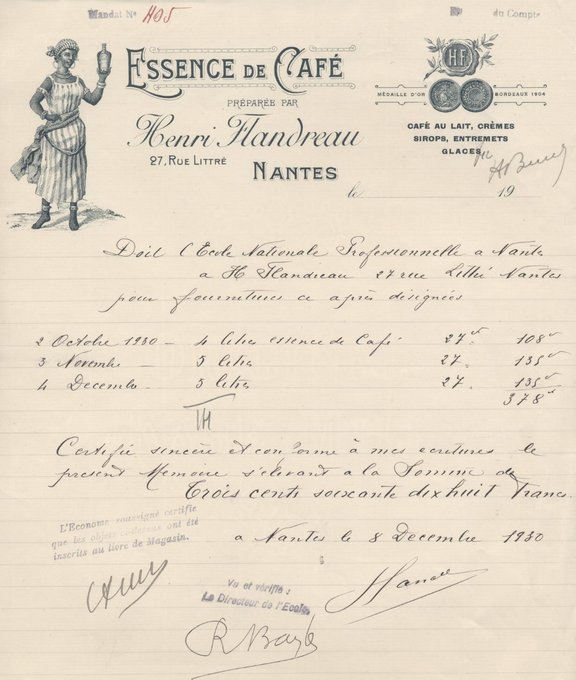 Mandat N° 405
du Compte
ESSENCE DE CAFÉ
PRÉPARÉE PAR
Henri Flandreau
27, RUE LITTRÉ
NANTES
H.F
MÉDAILLE D'OR BORDEAUX 1904
CAFÉ AU LAIT, CRÈMES
SIROPS, ENTREMETS
GLACES
le 19
Doit l'Ecole Nationale Professionnelle a Nantes
a H Flandreau 27 rue Littré Nantes
pour fournitures ci après désignées
2 Octobre 1930 — 4 litres essence de Café 27 108
3 Novembre — 5 litres 27. 135
4 Decembre — 5 litres 27. 135
378
Certifié sincère et conforme à mes ecritures le
présent Mémoire s'élevant a la Somme de
Trois cents soixante dix huit Francs
L'Econome soussigné certifie
que les objets ci-dessus ont été
inscrits au livre de Magasin.
a Nantes le 8 Decembre 1930
Vu et vérifié :
Le Directeur de l'Ecole,